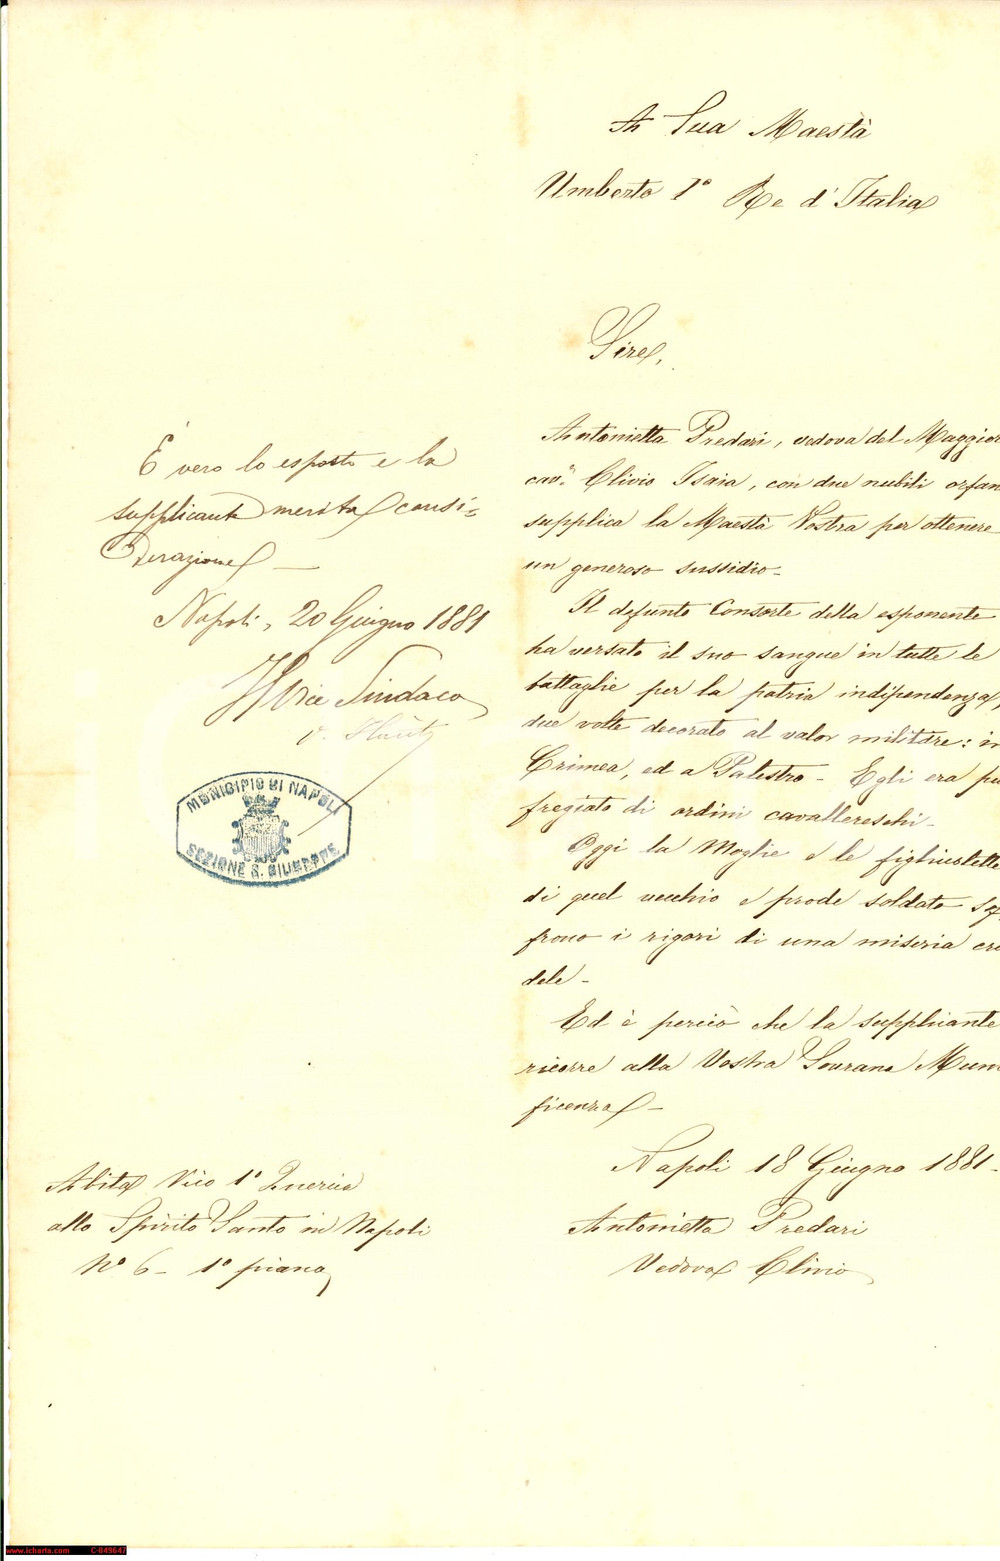 A Sua Maestà
Umberto 1° Re d'Italia
Sire,
Antonietta Predari, vedova del Maggior
cav.re Clivio Isaia, con due nubili orfan
supplica la Maestà Vostra per ottenere
un generoso sussidio-
Il defunto Consorte della esponente
ha versato il suo sangue in tutte le
battaglie per la patria indipendenza,
due volte decorato al valor militare: in
Crimea, ed a Palestro- Egli era pu
fregiato di ordini cavallereschi-
Oggi la Moglie e le figliuolette
di quel vecchio e prode soldato sof
frono i rigori di una miseria cru
dele-
Ed è perciò che la supplicante
ricorre alla Vostra Sovrana Muni
ficenza-
Napoli 18 Giugno 1881-
Antonietta Predari
Vedova Clivio
È vero lo esposto e la
supplicante merita consi=
derazione-
Napoli, 20 Giugno 1881
Il Vice Sindaco
MUNICIPIO DI NAPOLI
SEZIONE S. GIUSEPPE
Abita Vico 1° Quercia
allo Spirito Santo in Napoli
N° 6- 1° piano
www.icharta.com C-849647